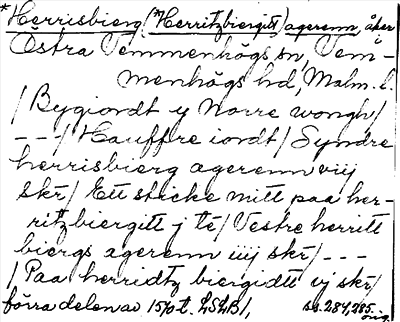 *Herrisbierg (*Herritzbiergitt) agerenn, åker
Östra Vemmenhögs sn, Vem-
menhögs hd, Malm. l.
/ Bygiordt y Norre wongh/
- - -/ Hauffre iordt/ Syndre
herrisbierg agerenn viij
skr/ Ett sticke mitt paa her-
ritzbiergitt j te/ Vestre herritt
biergs agerenn iiij skr/ - - -
/ Paa herridtz biergidtt vj skr/
förra delen av 15/0-t. LSLB1, ss. 284, 285.
orig.